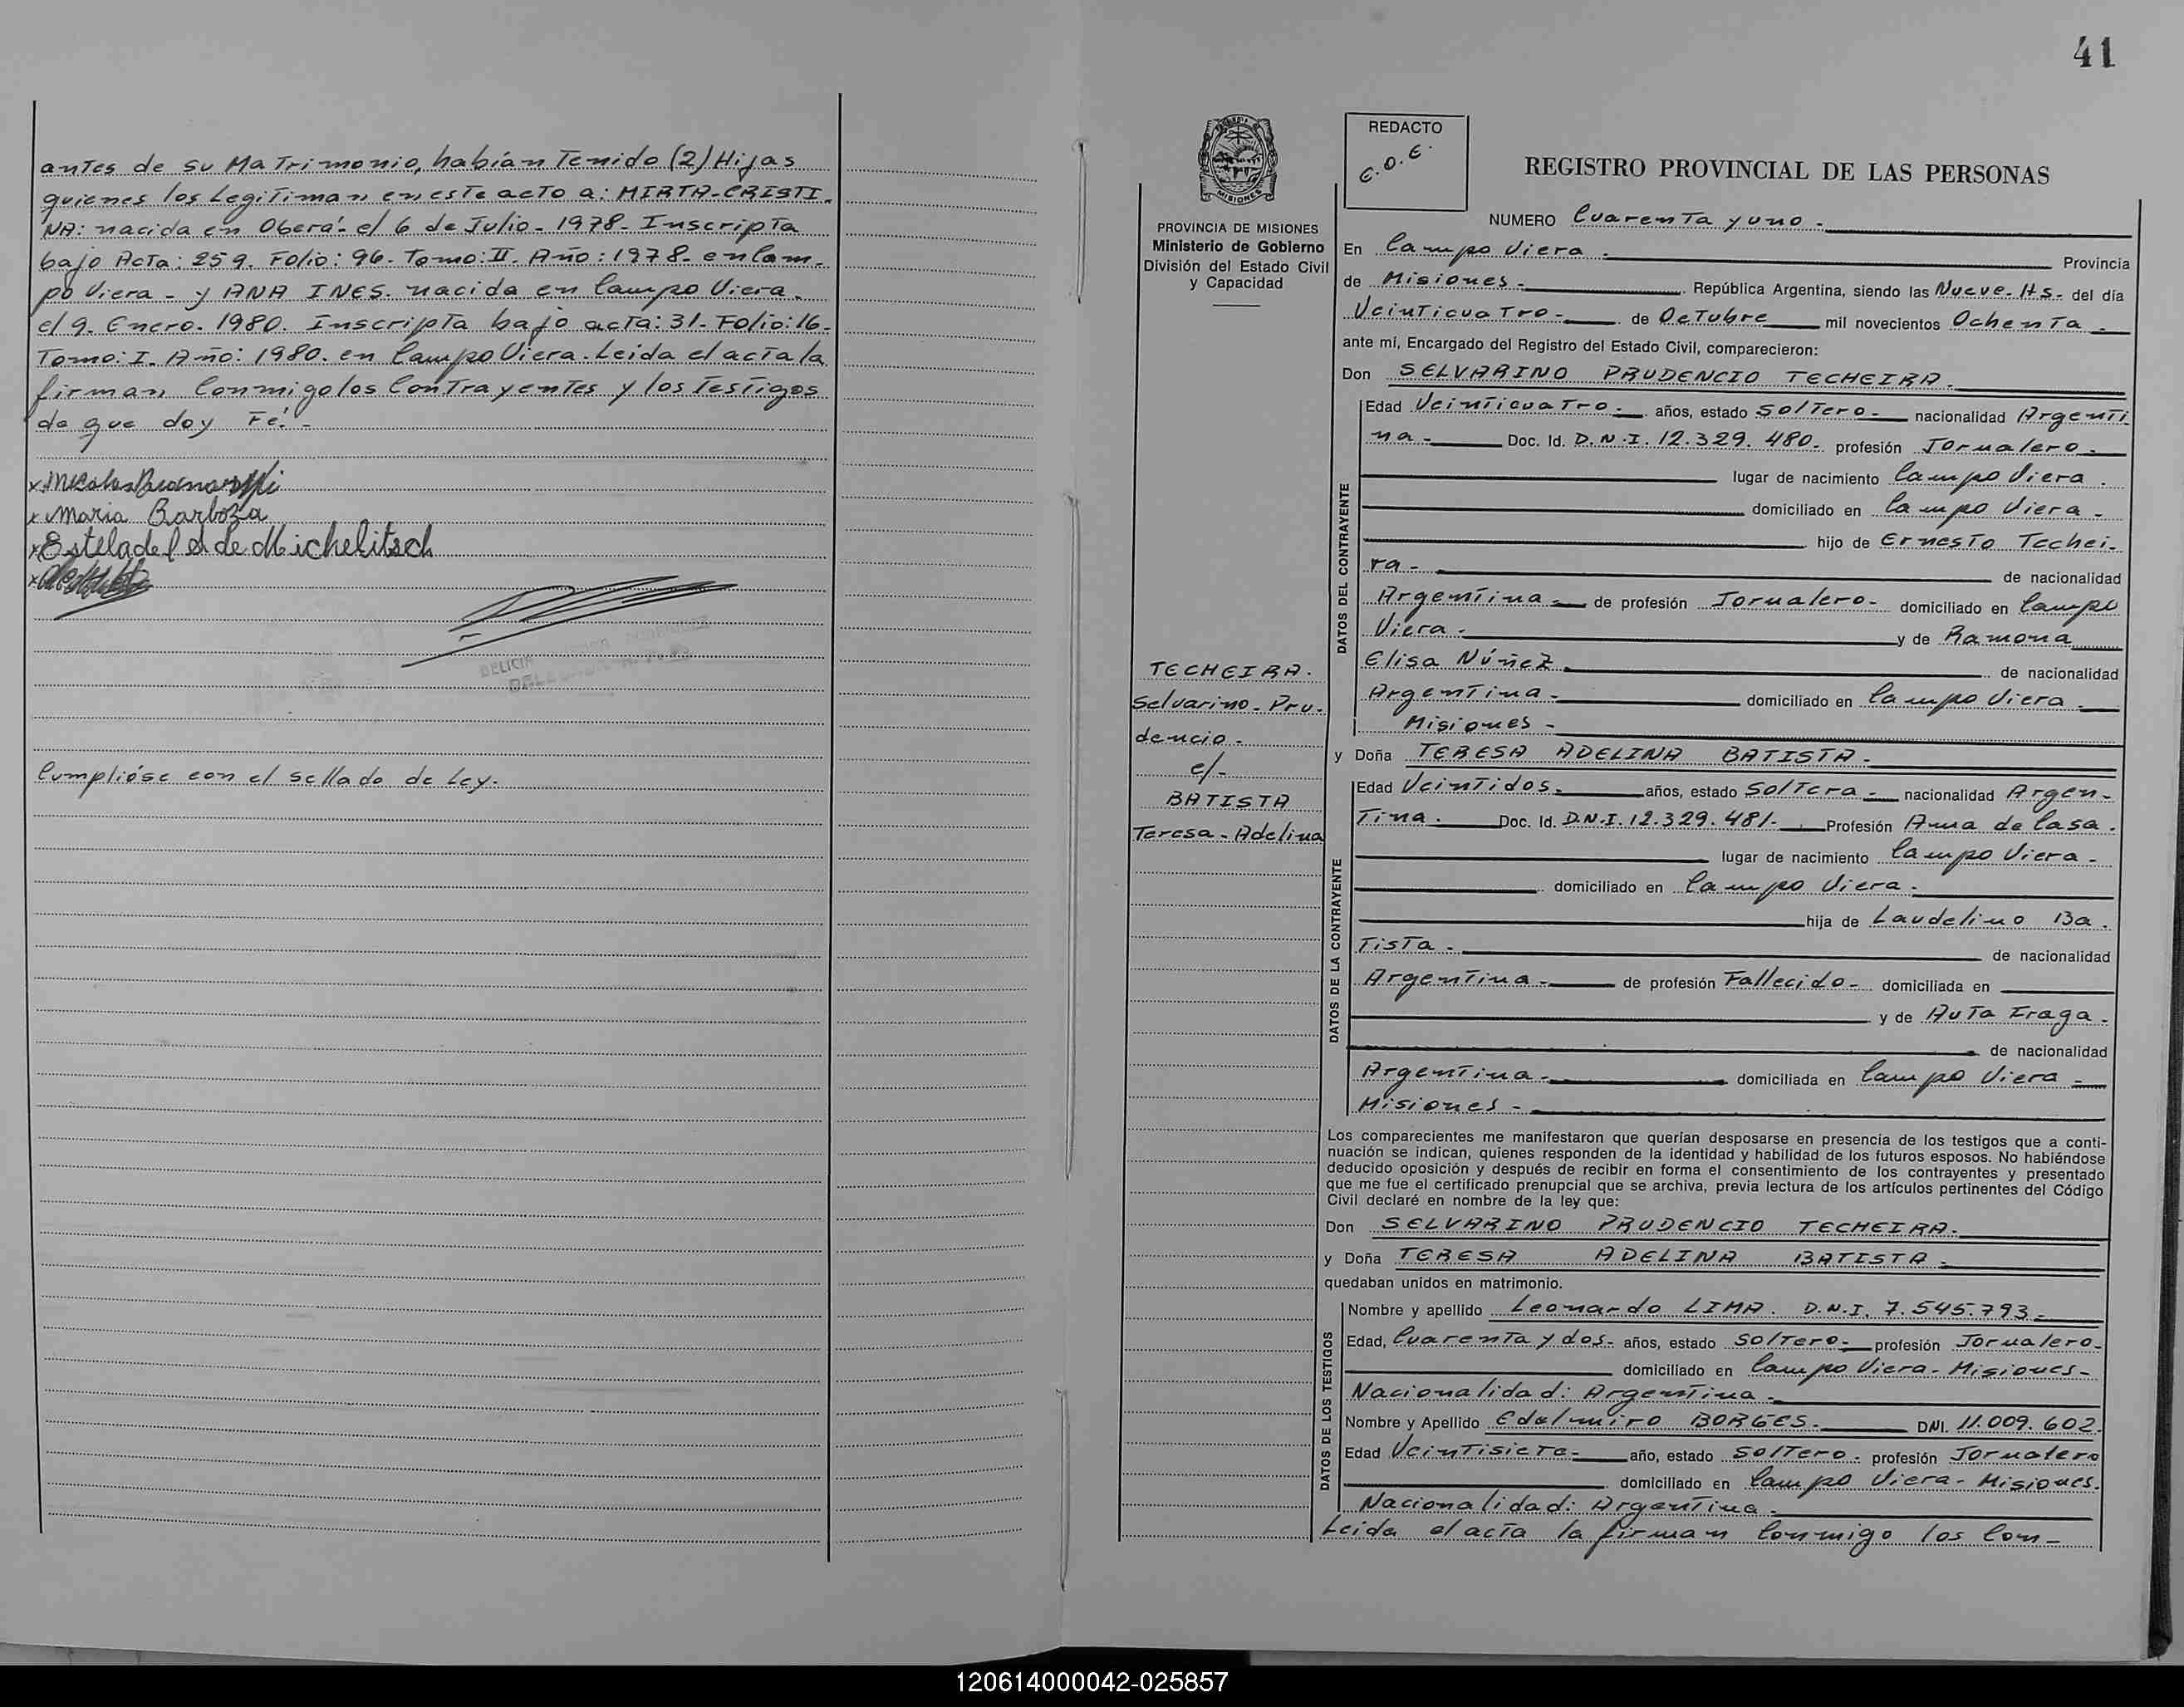 antes de su Matrimonio, habían Tenido (2) Hijas
quienes los Legitiman en este acto a: MIRTA-CRISTI-
NA: nacida en Oberá- el 6 de Julio - 1978. Inscripta
bajo Acta: 259. Folio: 96. Tomo: II. Año: 1978. en Cam-
po Viera - y ANA INES. nacida en Campo Viera.
el 9. Enero. 1980. Inscripta bajo acta: 31- Folio: 16-
Tomo: I. Año: 1980. en Campo Viera. Leida el acta la
firman Conmigo los Contrayentes y los Testigos
de que doy Fé. -
x Maria Barboza
x Estela de de Michelitsch
Cumplióse con el sellado de Ley.
41
MISIONES
PROVINCIA DE MISIONES
Ministerio de Gobierno
División del Estado Civil
y Capacidad
TECHEIRA.
Selvarino - Pru-
dencio -
c/-
BATISTA
Teresa - Adelina
REDACTO
E.O.E.
REGISTRO PROVINCIAL DE LAS PERSONAS
NUMERO Cuarenta y uno -
En Campo Viera - Provincia
de Misiones - República Argentina, siendo las Nueve-Hs- del día
Veinticuatro - de Octubre mil novecientos Ochenta -
ante mí, Encargado del Registro del Estado Civil, comparecieron:
Don SELVARINO PRUDENCIO TECHEIRA.
DATOS DEL CONTRAYENTE
Edad Veinticuatro - años, estado Soltero - nacionalidad Argenti
na - Doc. Id. D.N.I. 12.329.480- profesión Jornalero -
lugar de nacimiento Campo Viera.
domiciliado en Campo Viera -
hijo de Ernesto Techei-
ra - de nacionalidad
Argentina - de profesión Jornalero - domiciliado en Campo
Viera - y de Ramona
Elisa Núñez de nacionalidad
Argentina - domiciliado en Campo Viera
Misiones -
y Doña TERESA ADELINA BATISTA -
DATOS DE LA CONTRAYENTE
Edad Veintidos - años, estado Soltera - nacionalidad Argen-
Tina. Doc. Id. D.N.I. 12.329.481- Profesión Ama de Casa.
lugar de nacimiento Campo Viera -
domiciliado en Campo Viera -
hija de Laudelino Ba.
Tista - de nacionalidad
Argentina - de profesión Fallecido - domiciliada en
y de Auta Fraga -
de nacionalidad
Argentina - domiciliada en Campo Viera -
Misiones -
Los comparecientes me manifestaron que querían desposarse en presencia de los testigos que a conti-
nuación se indican, quienes responden de la identidad y habilidad de los futuros esposos. No habiéndose
deducido oposición y después de recibir en forma el consentimiento de los contrayentes y presentado
que me fue el certificado prenupcial que se archiva, previa lectura de los artículos pertinentes del Código
Civil declaré en nombre de la ley que:
Don SELVARINO PRUDENCIO TECHEIRA.
y Doña TERESA ADELINA BATISTA -
quedaban unidos en matrimonio.
DATOS DE LOS TESTIGOS
Nombre y apellido Leonardo LIMA. D.N.I. 7.545.793-
Edad, Cuarenta y dos - años, estado Soltero - profesión Jornalero -
domiciliado en Campo Viera - Misiones -
Nacionalidad: Argentina -
Nombre y Apellido Edelmiro BORGES. DNI. 11.009.602.
Edad Veintisiete - año, estado Soltero - profesión Jornalero
domiciliado en Campo Viera - Misiones.
Nacionalidad: Argentina -
Leida el acta la firman Conmigo los Con-
120614000042-025857